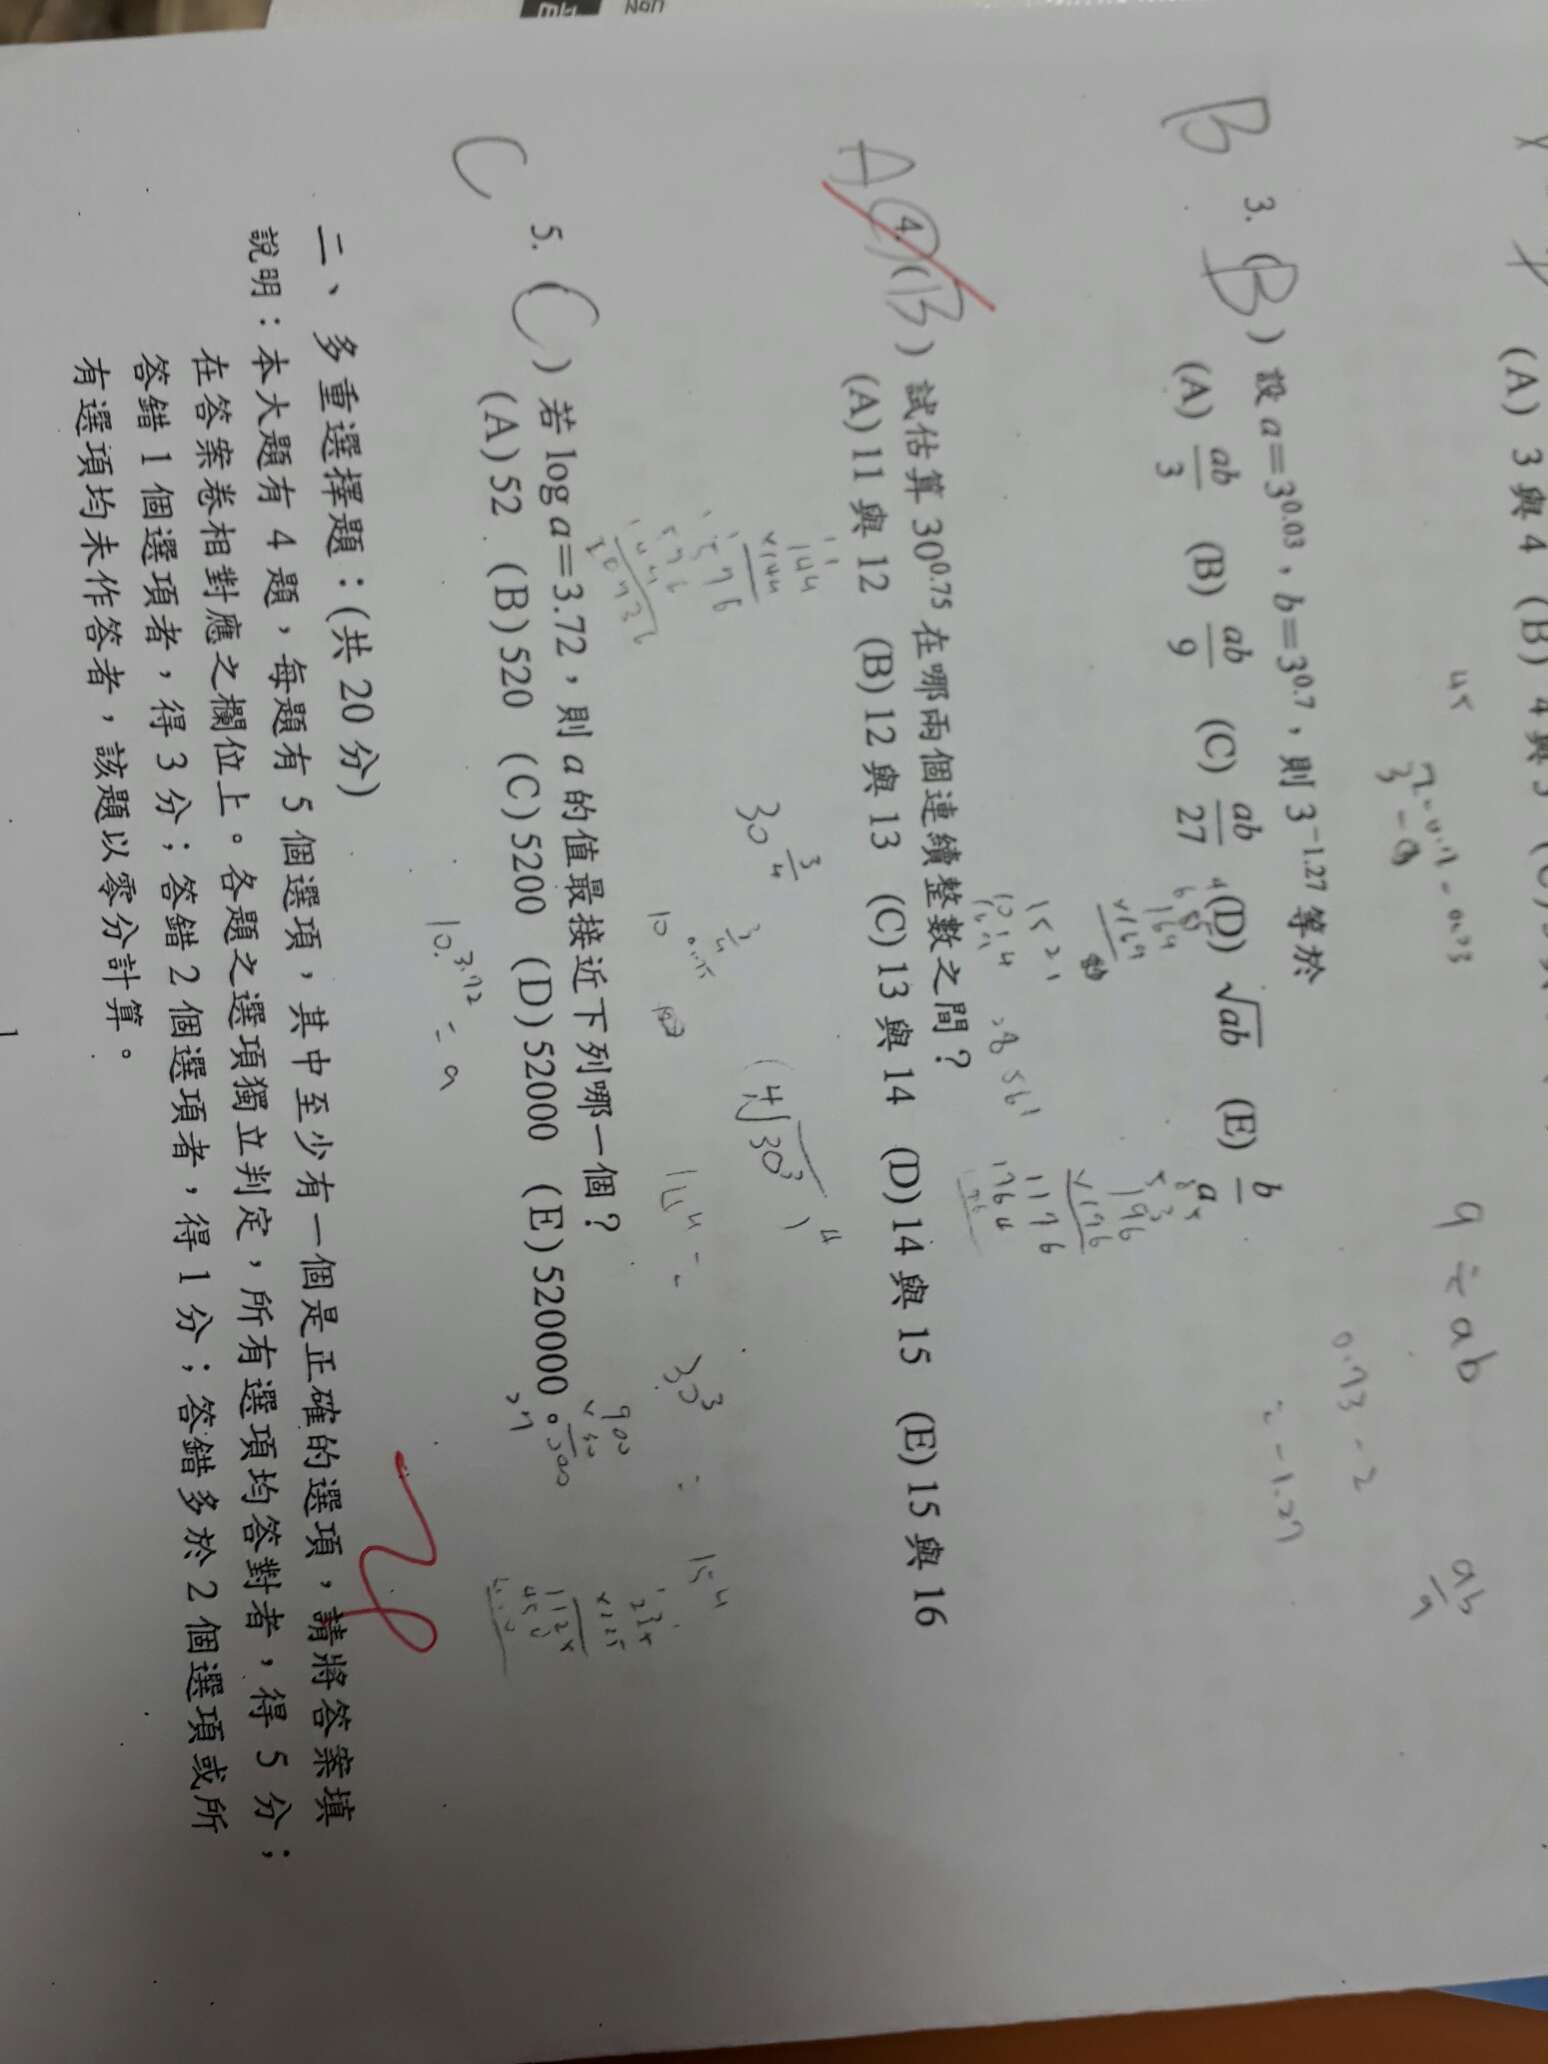 (A) 3 與 4 (B) 4 與 5
4x
9 ÷ ab
ab/9
0.73 - 2
= -1.27
B
3. ( B ) 設 a=3^0.03，b=3^0.7，則 3^-1.27 等於
(A) ab/3 (B) ab/9 (C) ab/27 (D) √ab (E) b/a
169
x169
1521
1014
169
28561
196
x196
1176
1764
A
4. ( B ) 試估算 30^0.75 在哪兩個連續整數之間？
(A) 11 與 12 (B) 12 與 13 (C) 13 與 14 (D) 14 與 15 (E) 15 與 16
144
x144
576
576
144
20736
30^3/4
(4√30^3)^4
10^0.75
3/4
30^3
15^4
900
x30
225
x225
1125
450
C
5. ( C ) 若 log a=3.72，則 a 的值最接近下列哪一個？
(A) 52 (B) 520 (C) 5200 (D) 52000 (E) 520000。
10^3.72 = a
二、多重選擇題：(共 20 分)
說明：本大題有 4 題，每題有 5 個選項，其中至少有一個是正確的選項，請將答案填
在答案卷相對應之欄位上。各題之選項獨立判定，所有選項均答對者，得 5 分；
答錯 1 個選項者，得 3 分；答錯 2 個選項者，得 1 分；答錯多於 2 個選項或所
有選項均未作答者，該題以零分計算。
1